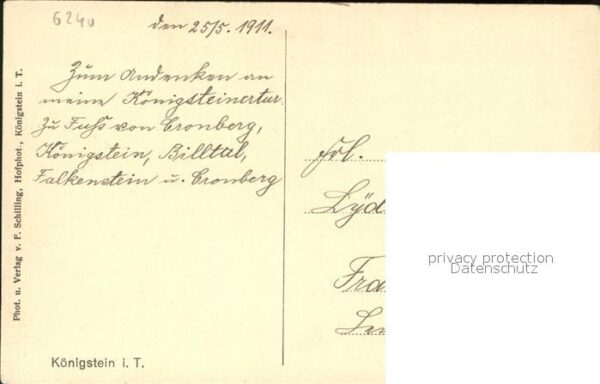 6240
den 25/5. 1911.
Zum Andenken an
meine Königsteinertur.
Zu Fuss von Cronberg,
Königstein, Billtal,
Falkenstein u. Cronberg
Frl.
Lÿd
Fra
privacy protection
Datenschutz
Königstein i. T.
Phot. u. Verlag v. F. Schilling, Hofphot., Königstein i. T.